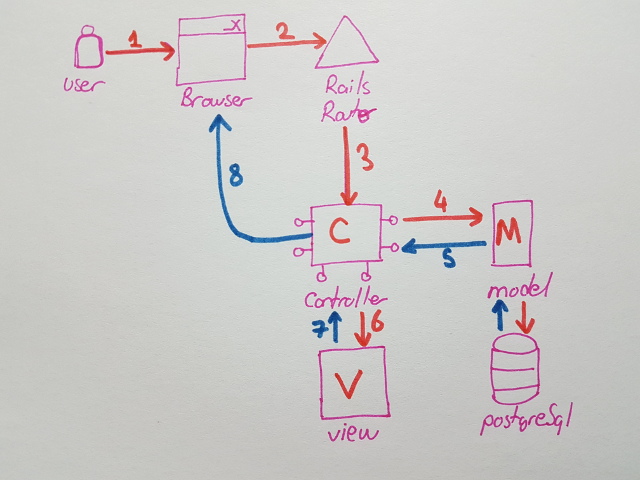 1
2
_x
user
Browser
Rails
Router
3
8
4
C
M
5
Controller
model
7
6
V
view
postgreSql